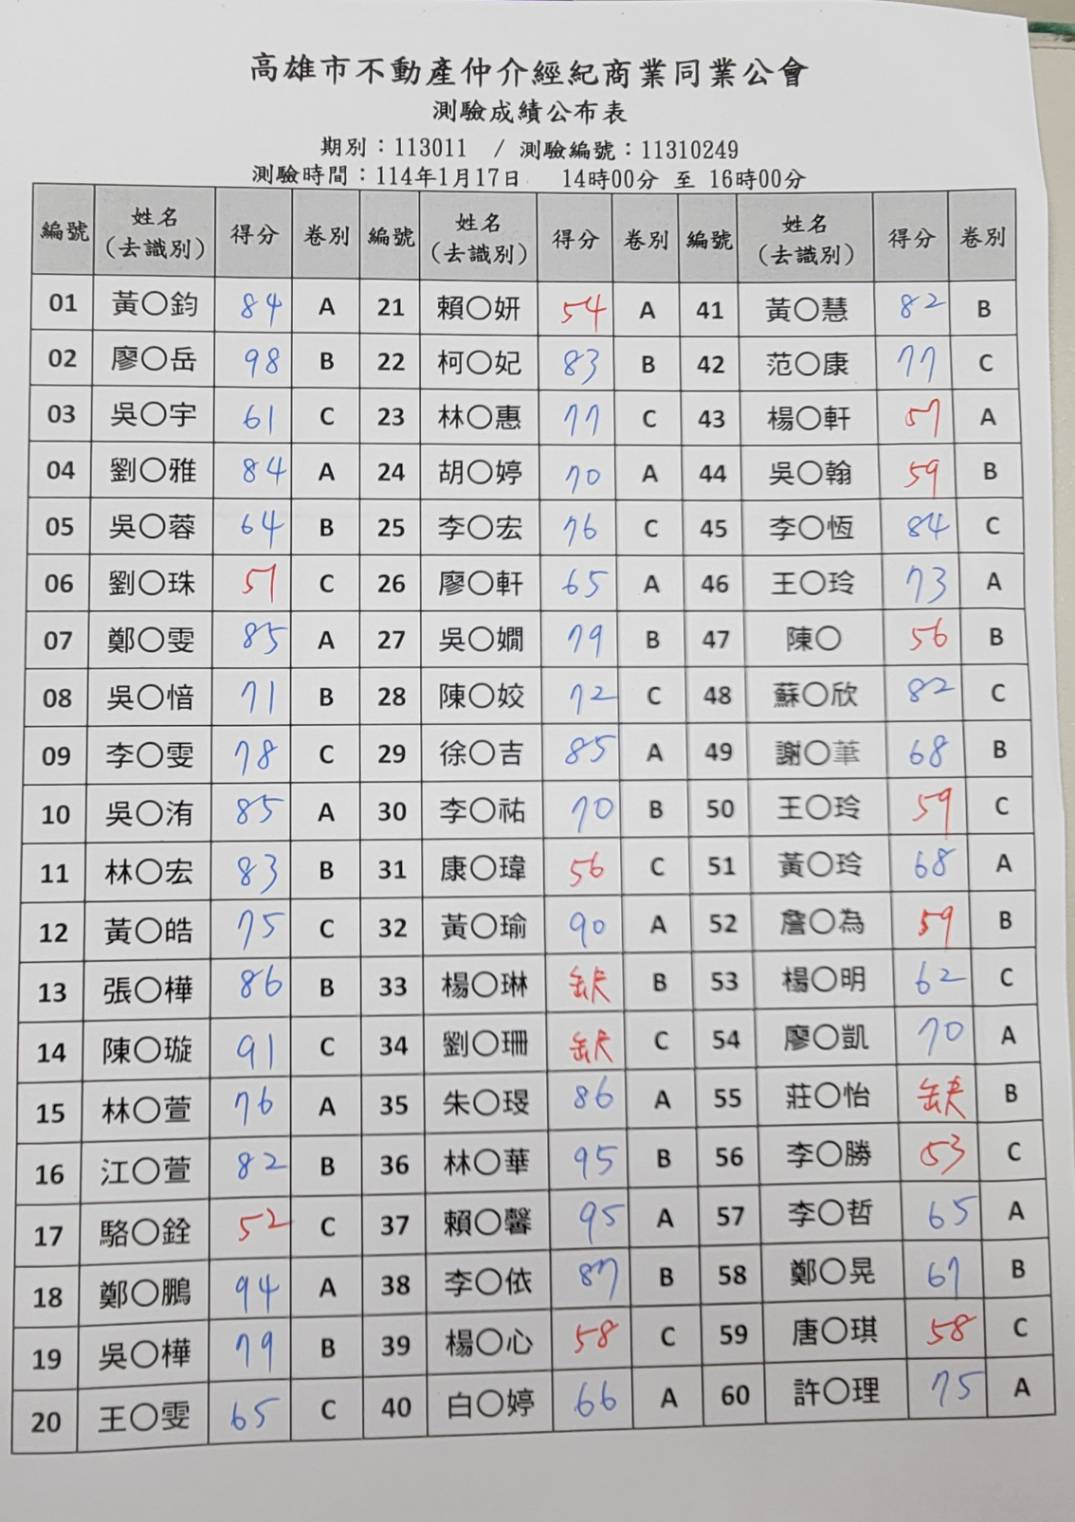 高雄市不動產仲介經紀商業同業公會
測驗成績公布表
期別：113011 / 測驗編號：11310249
測驗時間：114年1月17日 14時00分 至 16時00分
編號 姓名（去識別） 得分 卷別 編號 姓名（去識別） 得分 卷別 編號 姓名（去識別） 得分 卷別
01 黃〇鈞 84 A 21 賴〇妍 54 A 41 黃〇慧 82 B
02 廖〇岳 98 B 22 柯〇妃 83 B 42 范〇康 77 C
03 吳〇宇 61 C 23 林〇惠 77 C 43 楊〇軒 57 A
04 劉〇雅 84 A 24 胡〇婷 70 A 44 吳〇翰 59 B
05 吳〇蓉 64 B 25 李〇宏 76 C 45 李〇恆 84 C
06 劉〇珠 57 C 26 廖〇軒 65 A 46 王〇玲 73 A
07 鄭〇雯 85 A 27 吳〇嫺 79 B 47 陳〇 56 B
08 吳〇愔 71 B 28 陳〇姣 72 C 48 蘇〇欣 82 C
09 李〇雯 78 C 29 徐〇吉 85 A 49 謝〇 68 B
10 吳〇洧 85 A 30 李〇祐 70 B 50 王〇玲 59 C
11 林〇宏 83 B 31 康〇瑋 56 C 51 黃〇玲 68 A
12 黃〇皓 75 C 32 黃〇瑜 90 A 52 詹〇為 59 B
13 張〇樺 86 B 33 楊〇琳 缺 B 53 楊〇明 62 C
14 陳〇璇 91 C 34 劉〇珊 缺 C 54 廖〇凱 70 A
15 林〇萱 76 A 35 朱〇 86 A 55 莊〇怡 缺 B
16 江〇萱 82 B 36 林〇華 95 B 56 李〇勝 53 C
17 駱〇銓 52 C 37 賴〇馨 95 A 57 李〇哲 65 A
18 鄭〇鵬 94 A 38 李〇依 87 B 58 鄭〇晃 67 B
19 吳〇樺 79 B 39 楊〇心 58 C 59 唐〇琪 58 C
20 王〇雯 65 C 40 白〇婷 66 A 60 許〇理 75 A